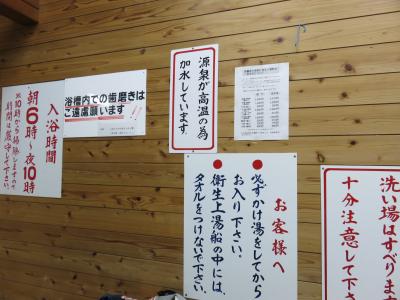 入浴時間
朝6時〜夜10時
※10時から掃除しますので
時間は厳守して下さい。
浴槽内での歯磨きは
ご遠慮願います
源泉が高温の為
加水しています。
お客様へ
必ずかけ湯をしてから
お入り下さい。
衛生上湯船の中には、
タオルをつけないで下さい。
洗い場はすべります
十分注意して下さ